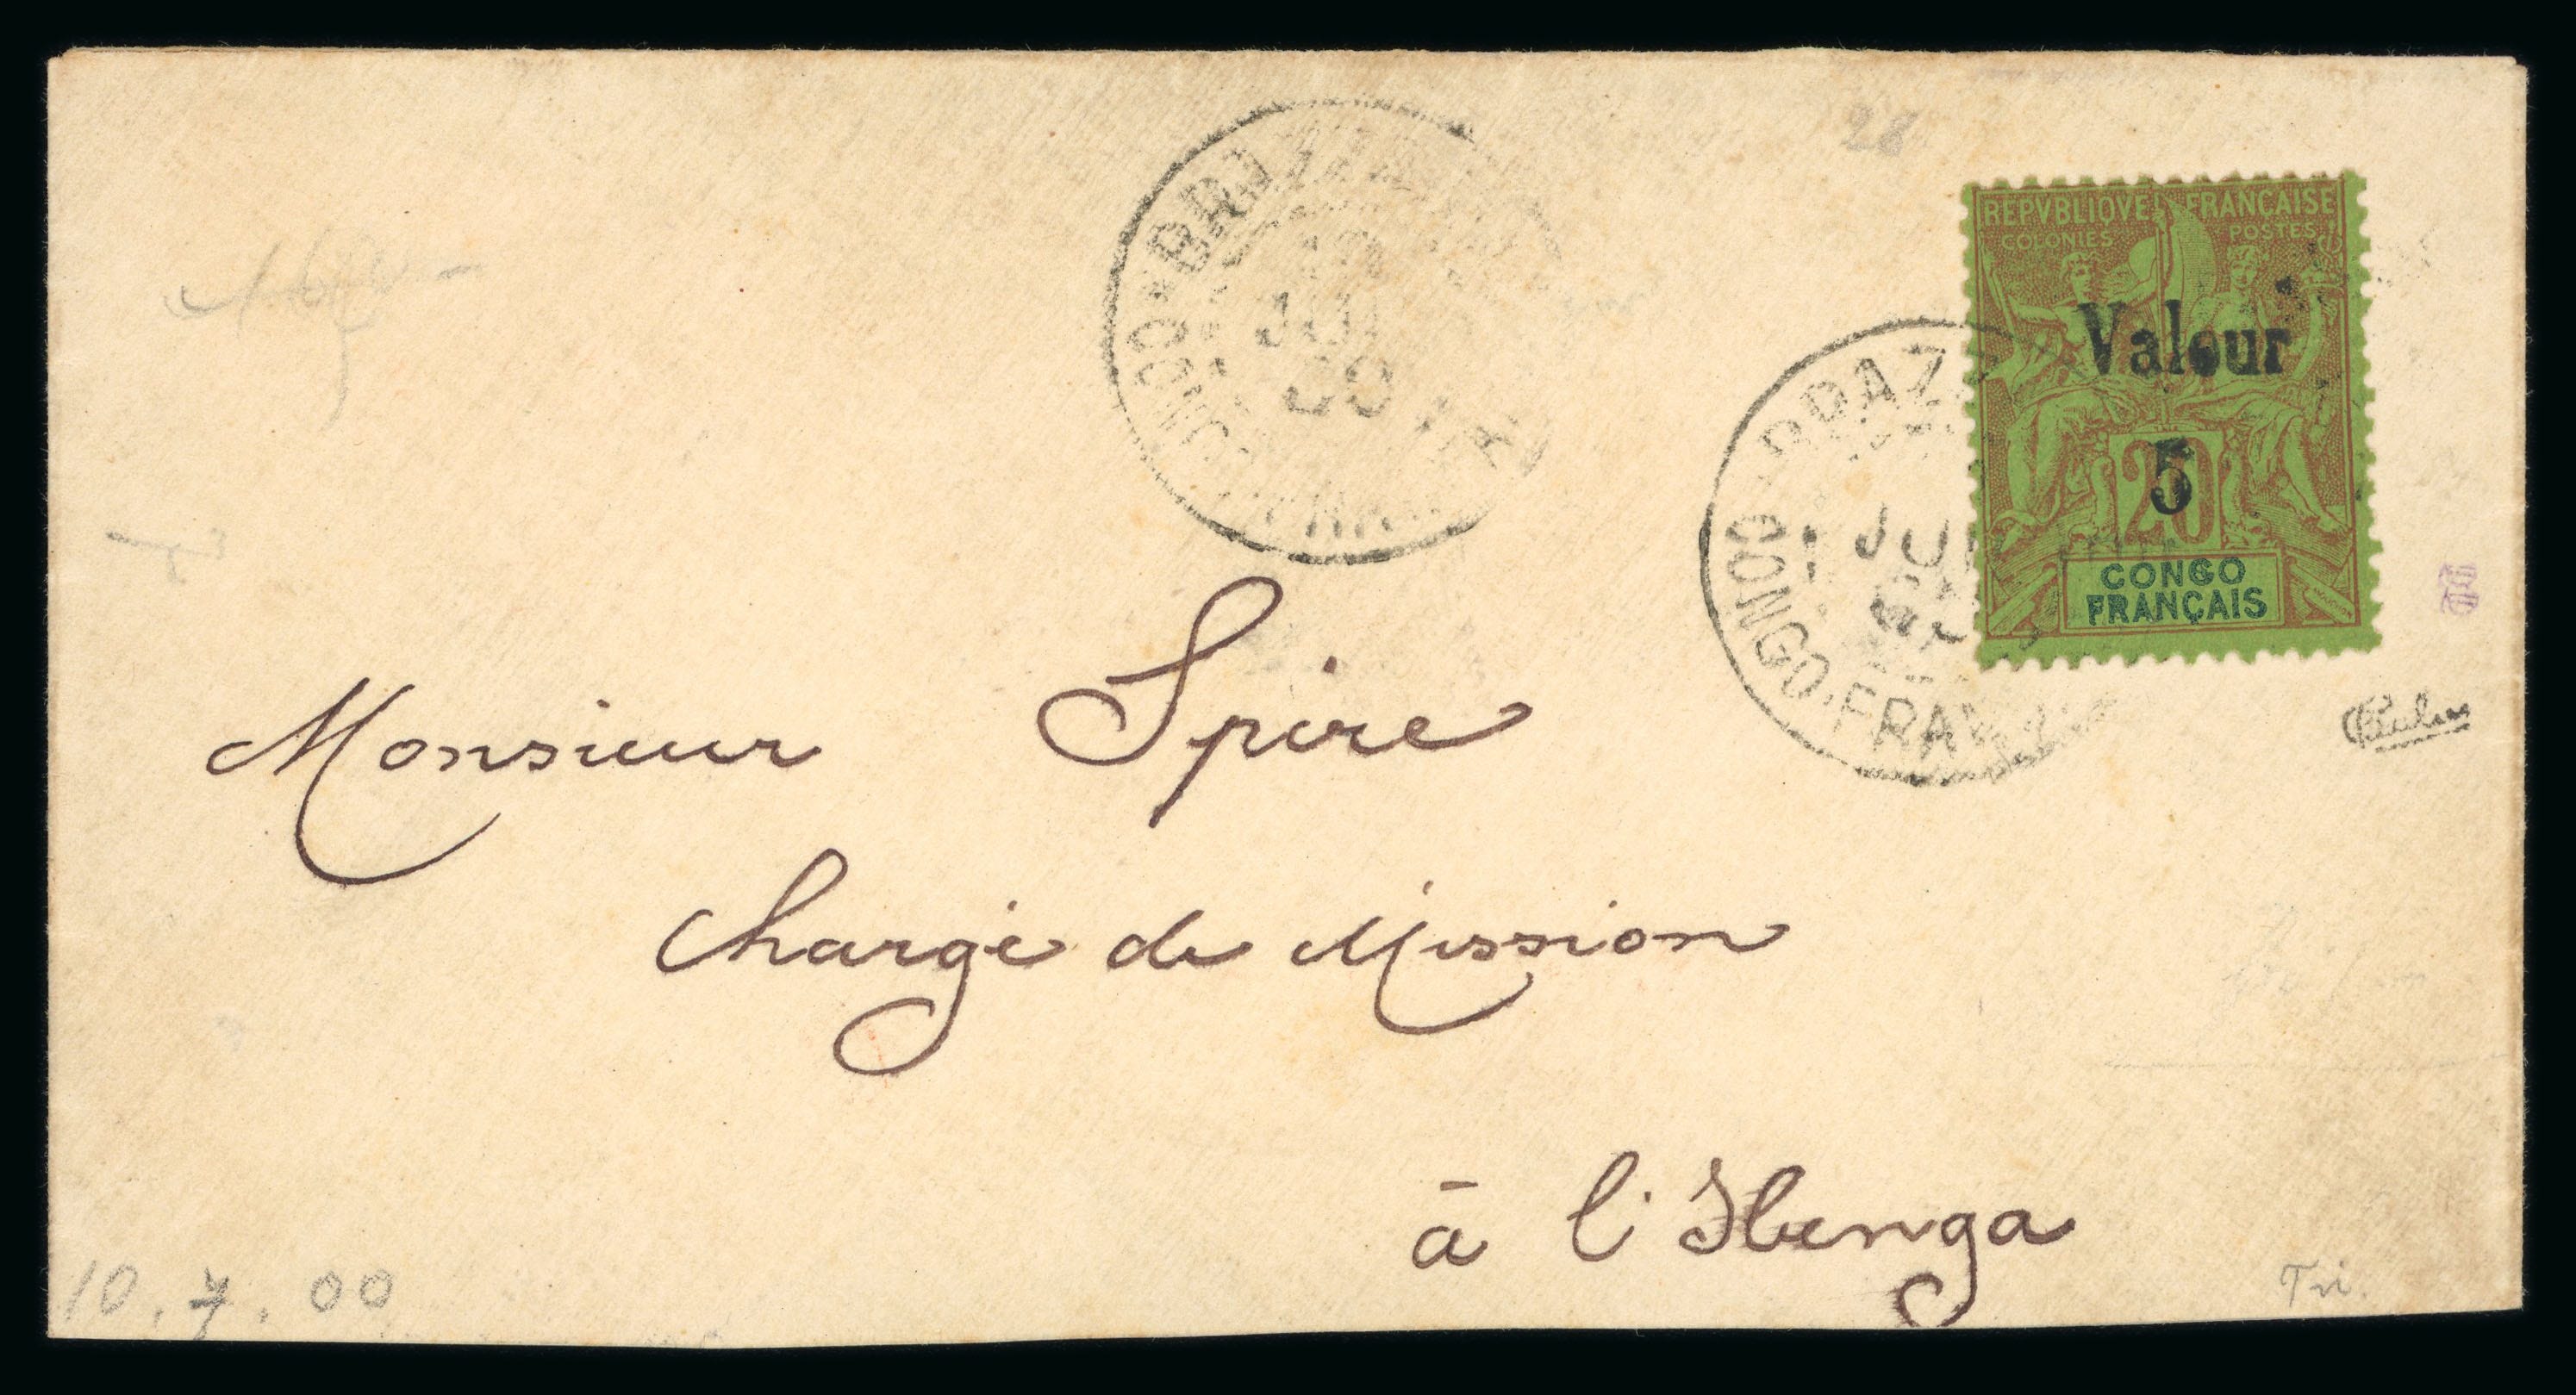 28
REPVBLIQVE FRANÇAISE
COLONIES POSTES
Valeur
5
20
CONGO
FRANÇAIS
BRAZZA
JUI
00
CONGO FRA
BRAZ
JUI
CONGO-FRAN
Monsieur Spire
Chargé de Mission
à l'Ibenga
10.7.00
Tri.